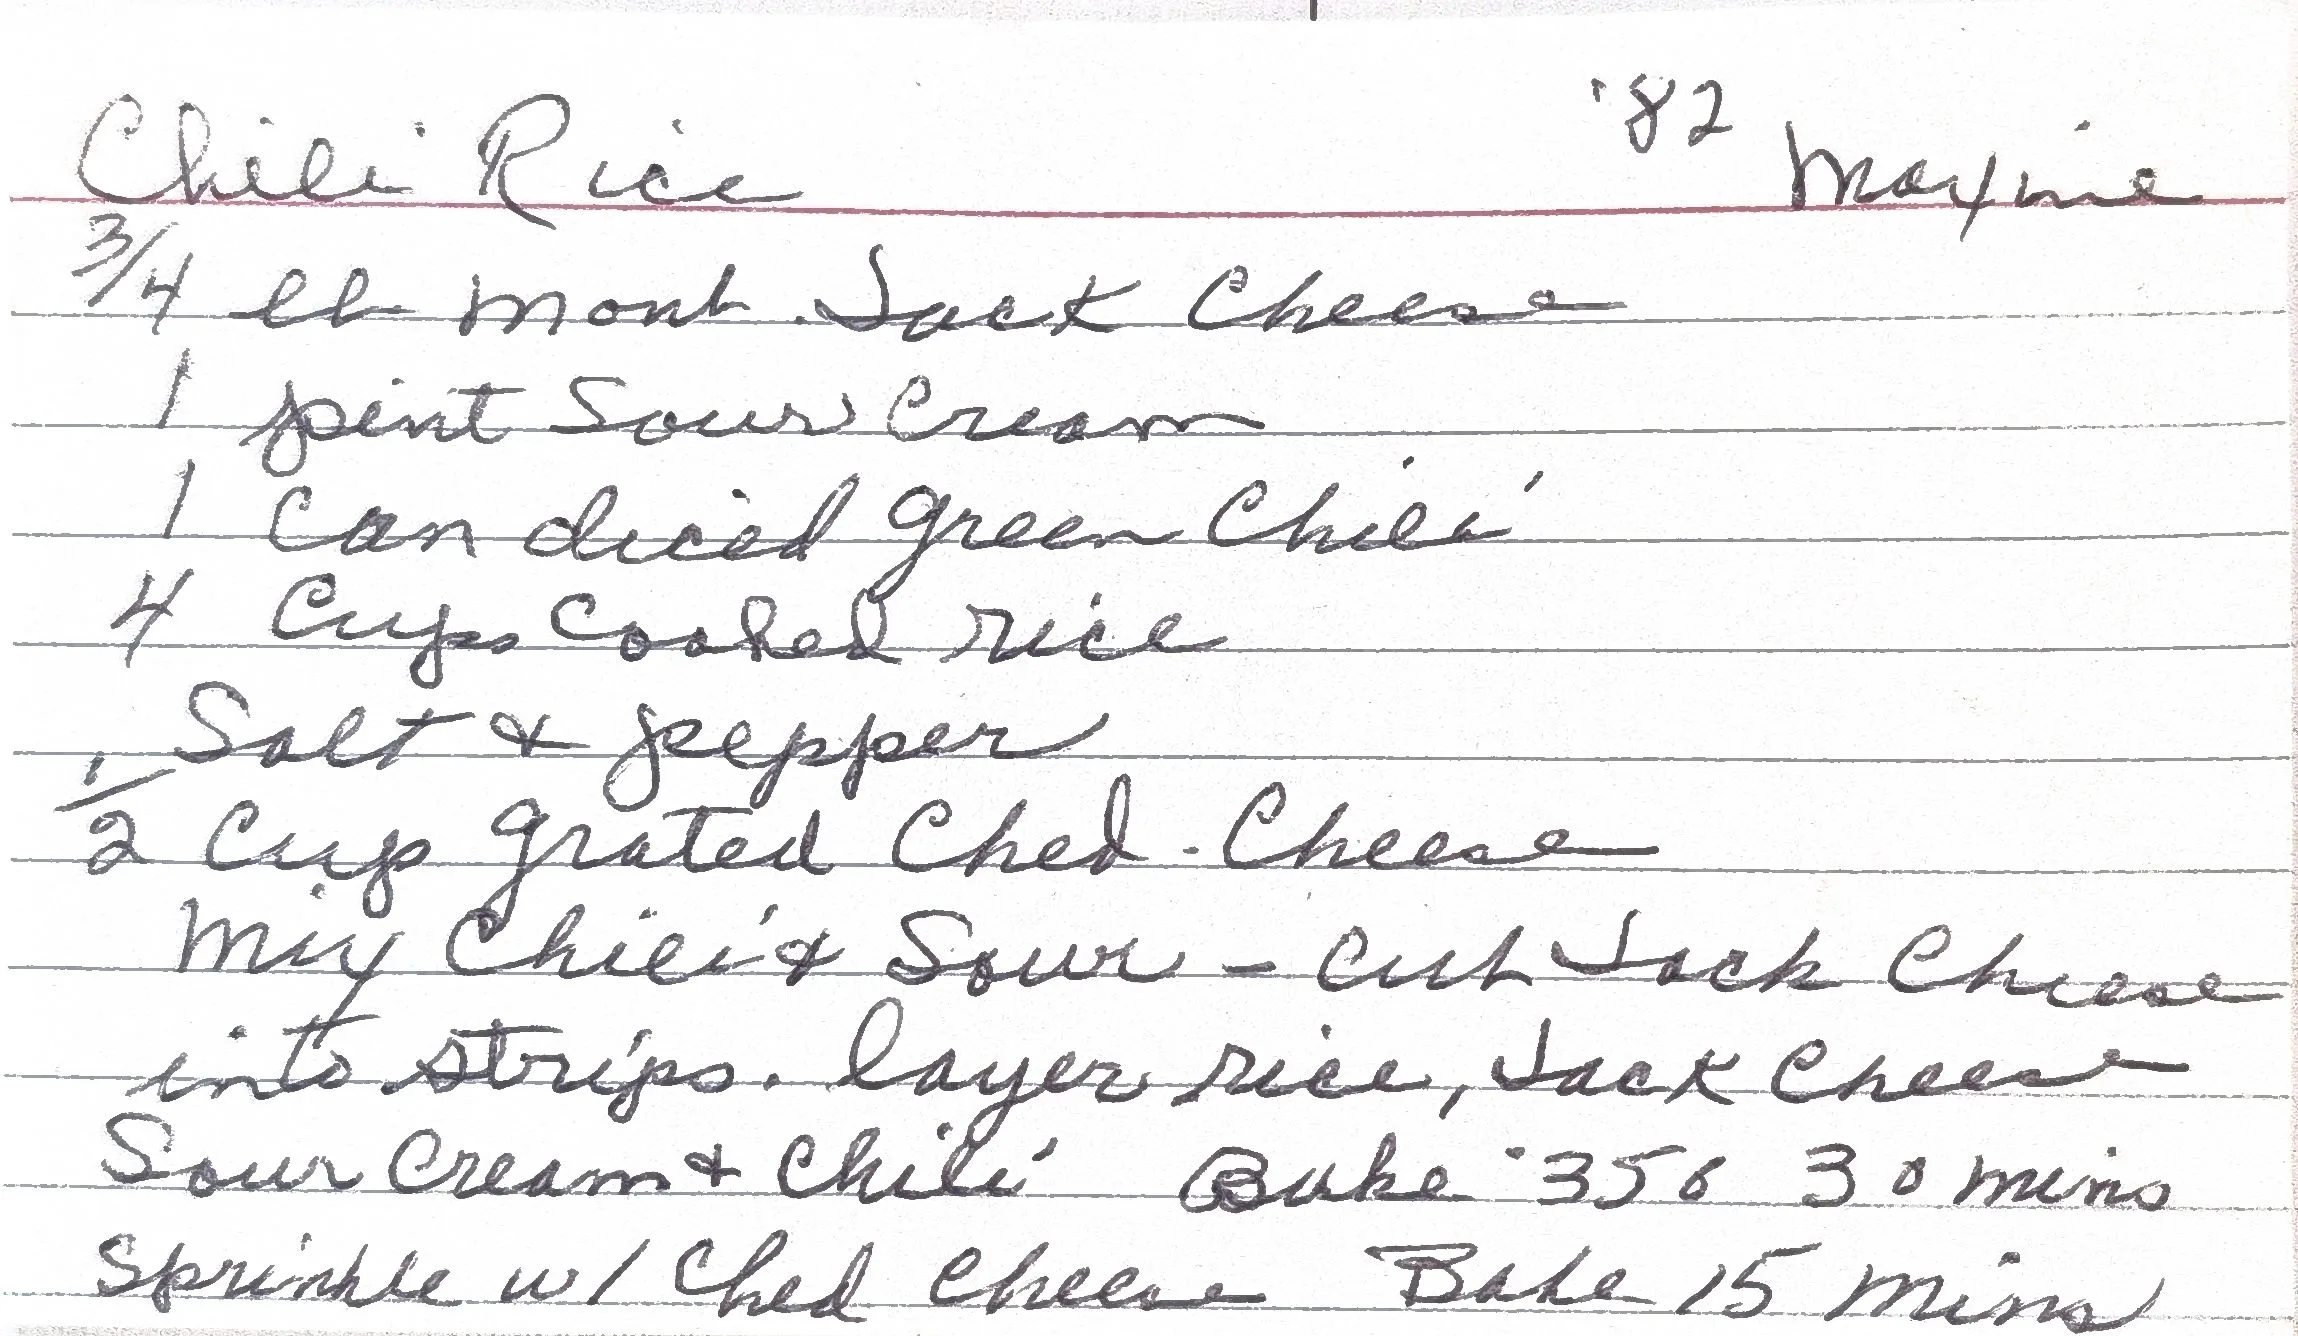 Chili Rice '82 Maxine
3/4 lb Mont. Jack Cheese
1 pint Sour Cream
1 Can diced green Chili
4 Cups Cooked rice
Salt & pepper
1/2 Cup grated Ched. Cheese
Mix Chili & Sour - cut Jack Cheese
into strips. layer rice, Jack Cheese
Sour Cream & Chili Bake 350 30 mins
Sprinkle w/ Ched Cheese Bake 15 mins